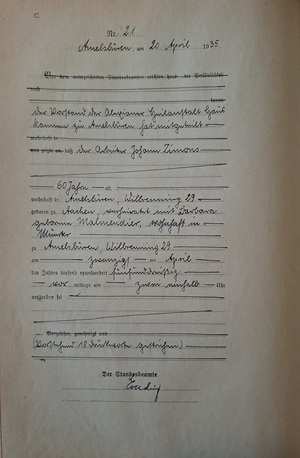 C
Nr. 21
Amelsbüren, am 20. April 1935
Vor dem unterzeichneten Standesbeamten erschien heute, der Persönlichkeit
nach
kannt,
der Vorstand der Alexianer Heilanstalt Haus
Kannen zu Amelsbüren hat mitgeteilt
wohnhaft in
und zeigte an, daß der Arbeiter Johann Simons
60 Jahre alt,
wohnhaft in Amelsbüren, Wilbrenning 29
geboren zu Aachen, verheiratet mit Barbara
geborene Malmendier, wohnhaft in
Münster
zu Amelsbüren, Wilbrenning 29
am zwanzigsten April
des Jahres tausend neunhundert fünfunddreißig
vor mittags um zwei einhalb Uhr
verstorben sei
Vorgelesen, genehmigt und
Vorstehend 18 Druckworte gestrichen
Der Standesbeamte